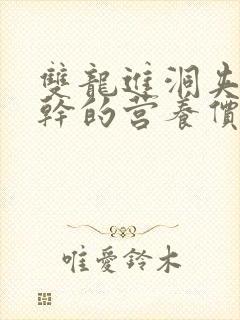 雙龍進洞失
幹的营養價
唯愛鈴木